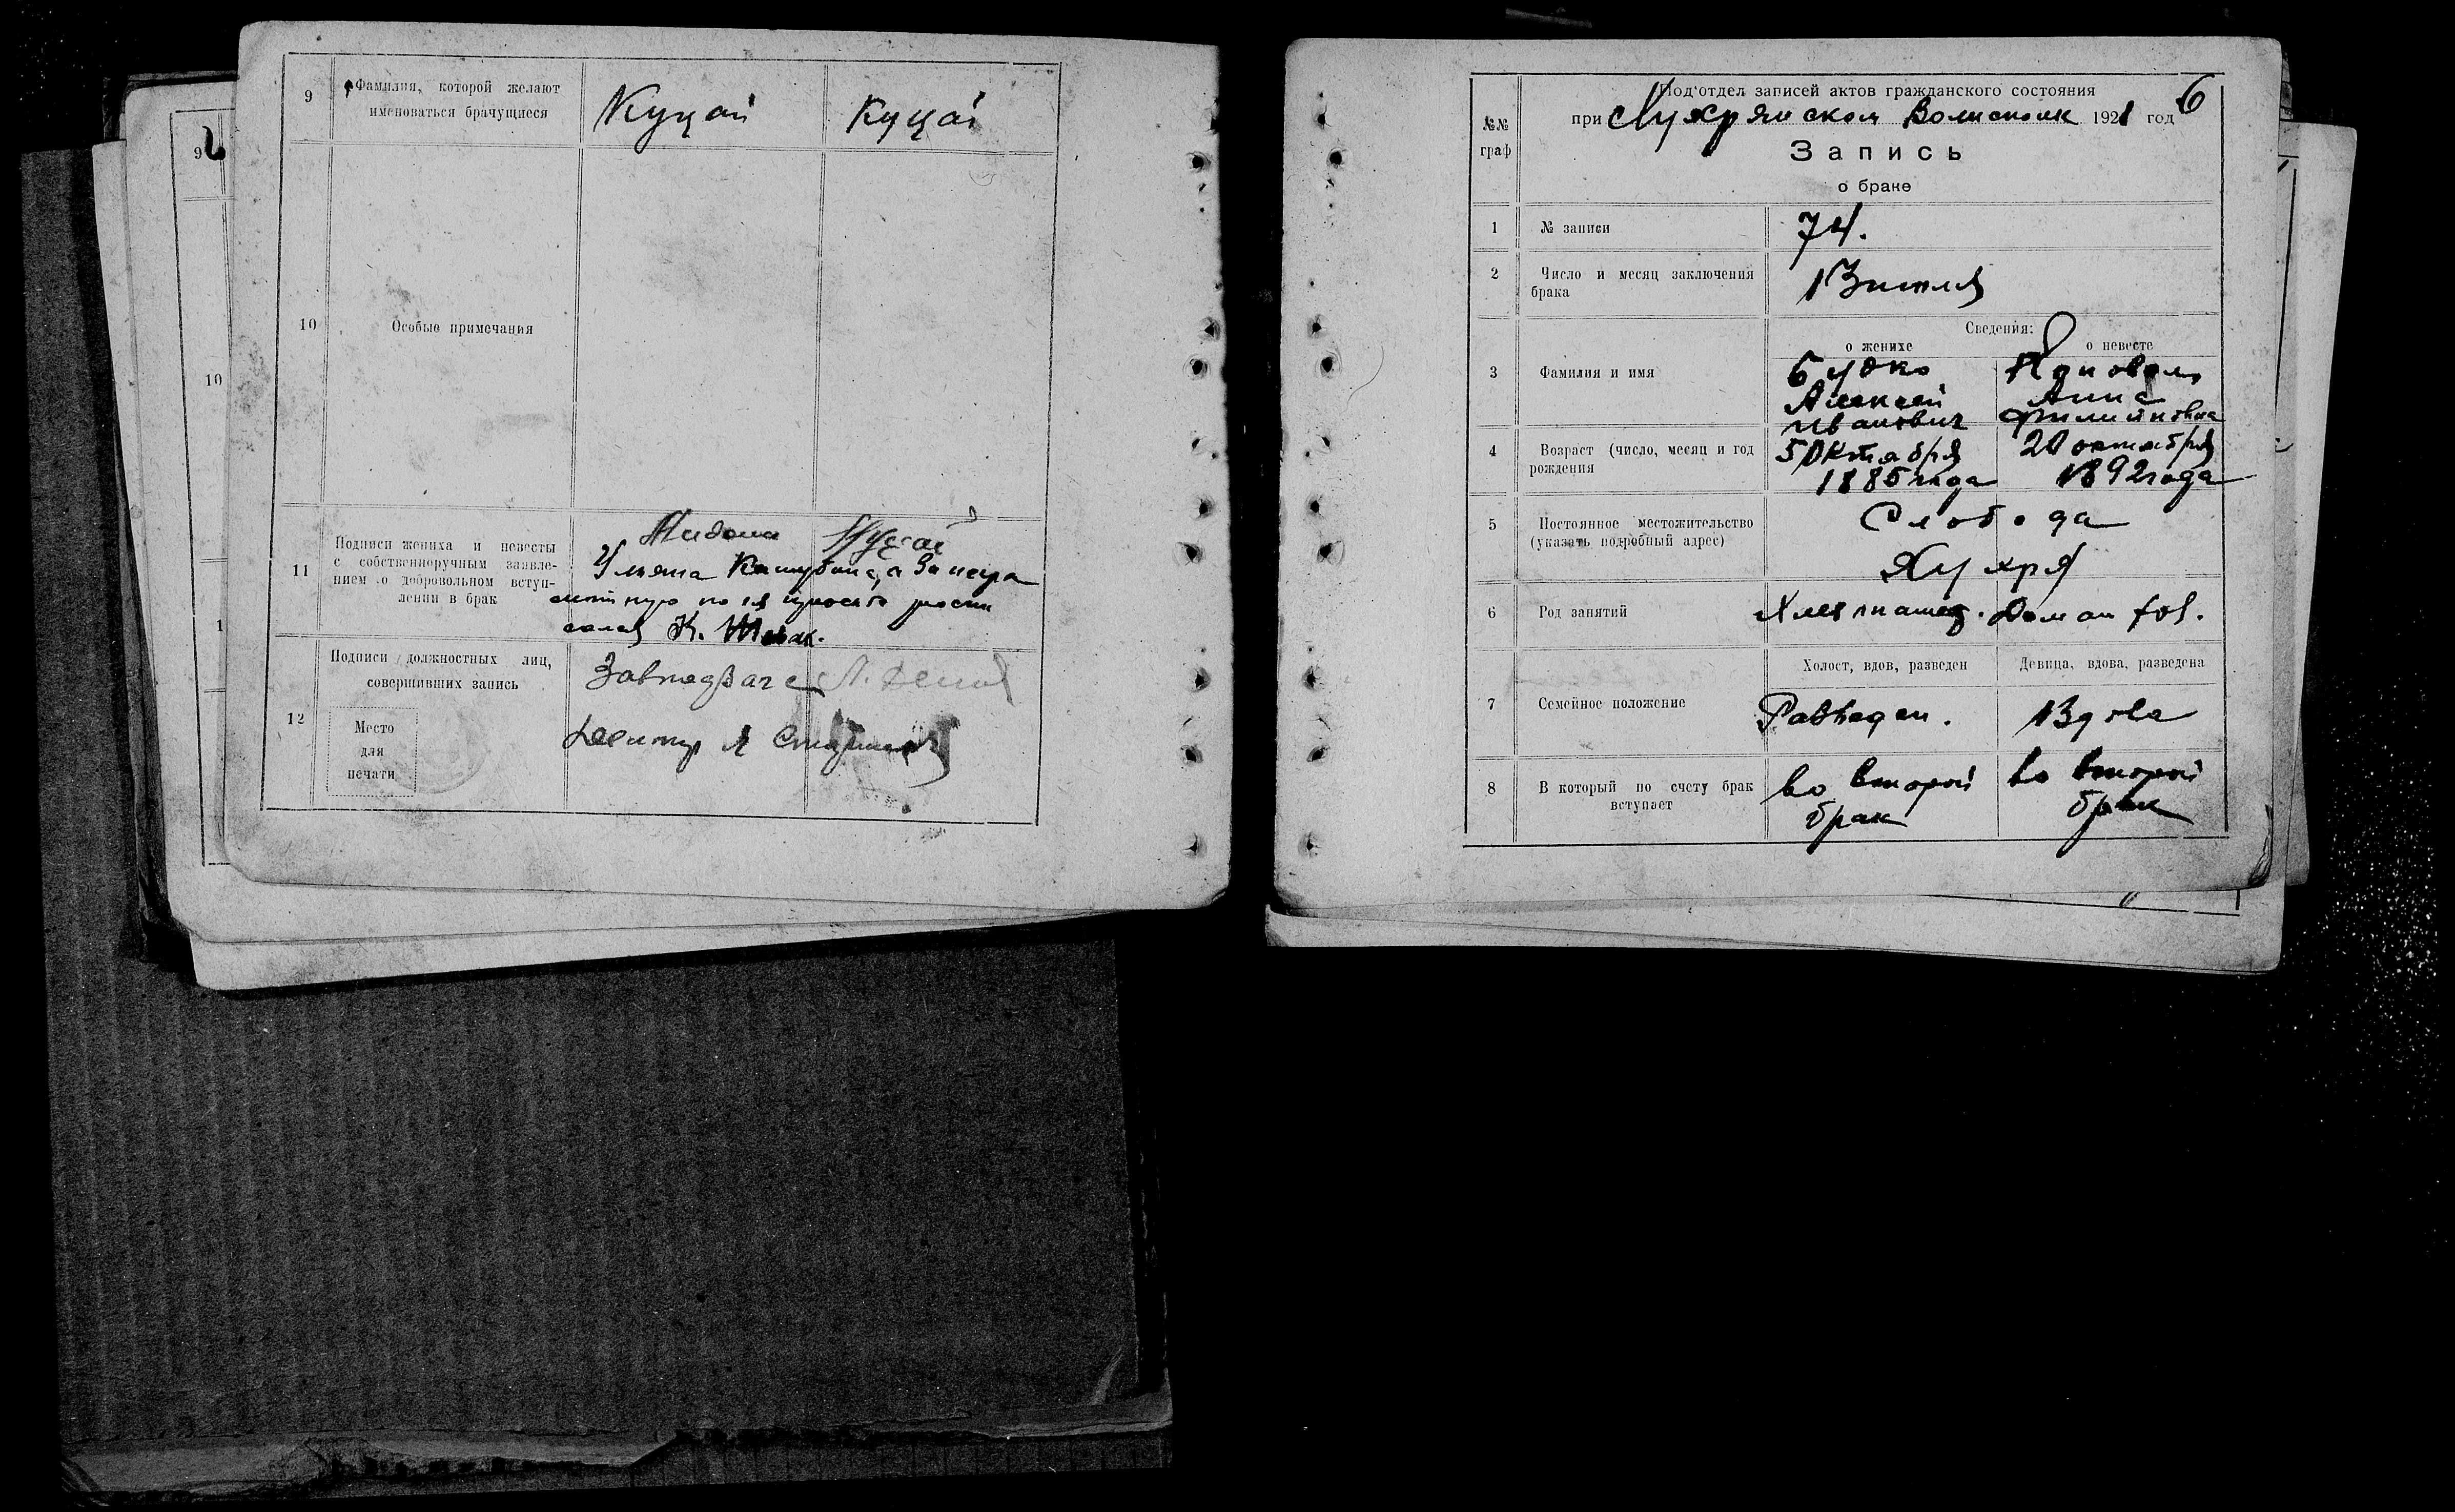 9
Фамилия, которой желают
именоваться брачущиеся
Куцай
Куцай
10
Особые примечания
11
Подписи жениха и невесты
с собственноручным заявле-
нием о добровольном вступ-
лении в брак
Куцай
Ульяна а За негра
мотную по ея прозьбе роспи
салса К.
12
Подписи должностных лиц,
совершивших запись
Место
для
печати
9
10
1
№№
граф
Под'отдел записей актов гражданского состояния
при Хухрянском Волисполк 1921 год
6
Запись
о браке
1
№ записи
74.
2
Число и месяц заключения
брака
13 июля
Сведения:
о женихе
о невесте
3
Фамилия и имя
Будко
Алексей
Иванович
Анна
Филиповна
4
Возраст (число, месяц и год
рождения
5 Октября
1885 года
20 октября
1892 года
5
Постоянное местожительство
(указать подробный адрес)
Слобода
Хухря
6
Род занятий
Хлебопашец.
Домаш хоз.
7
Семейное положение
Холост, вдов, разведен
Девица, вдова, разведена
Разведен.
Вдова
8
В который по счету брак
вступает
во второй
брак
во второй
брак